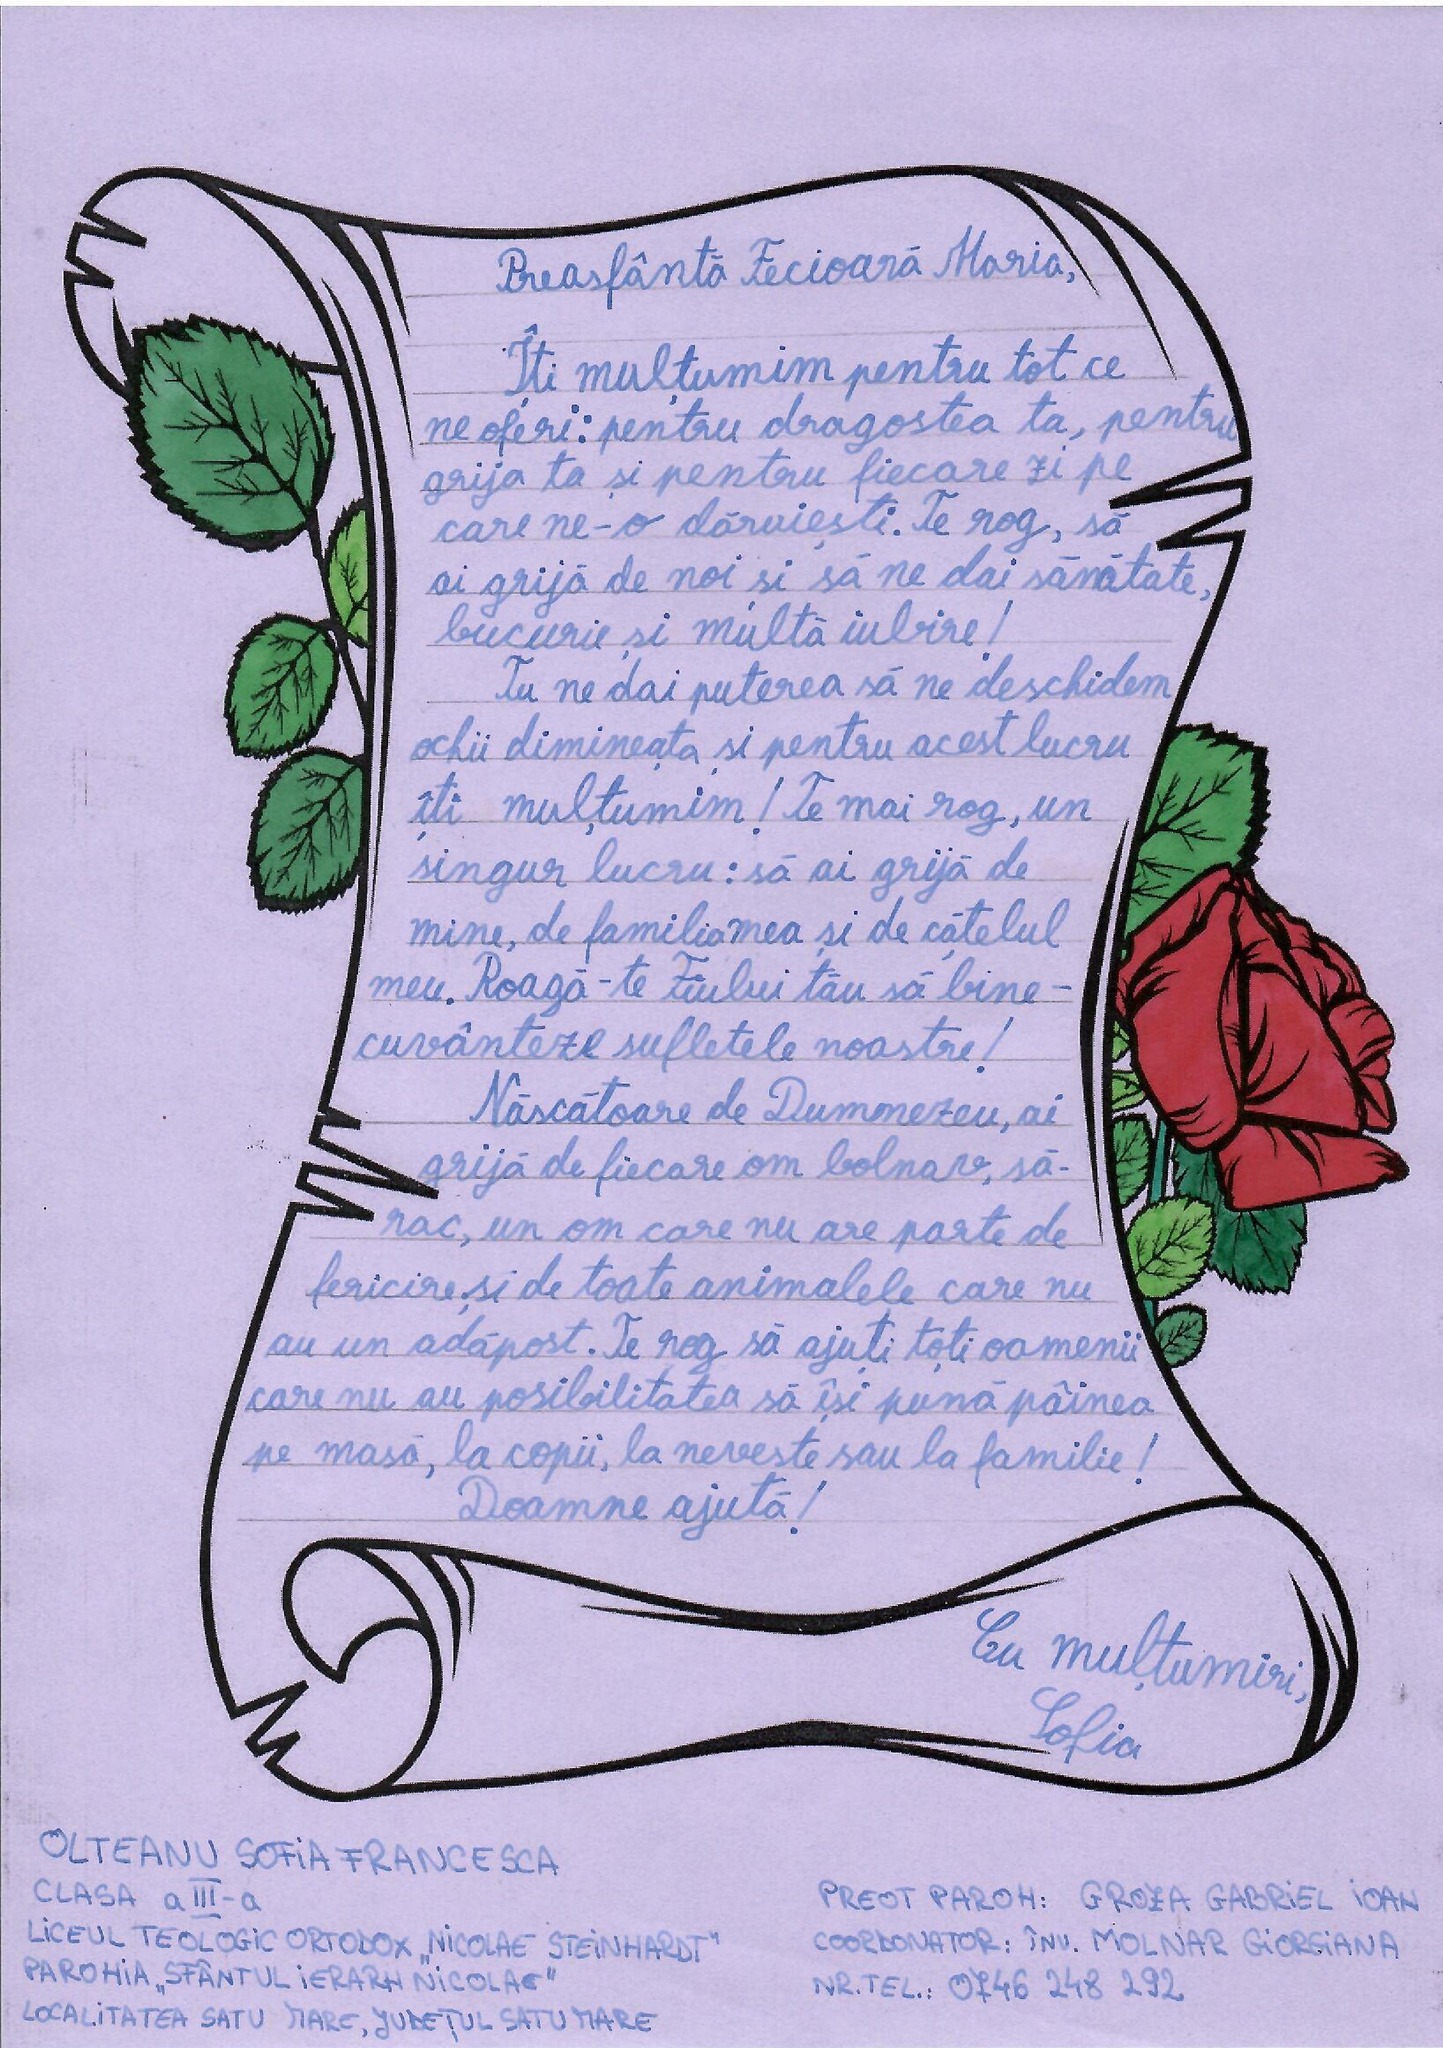 Preasfântă Fecioară Maria,
Îți mulțumim pentru tot ce
ne oferi: pentru dragostea ta, pentru
grija ta și pentru fiecare zi pe
care ne-o dăruiești. Te rog, să
ai grijă de noi și să ne dai sănătate,
bucurie și multă iubire!
Tu ne dai puterea să ne deschidem
ochii dimineața și pentru acest lucru
îți mulțumim! Te mai rog, un
singur lucru: să ai grijă de
mine, de familia mea și de cățelul
meu. Roagă-te Fiului tău să bine-
cuvânteze sufletele noastre!
Născătoare de Dumnezeu, ai
grijă de fiecare om bolnav, să-
rac, un om care nu are parte de
fericire și de toate animalele care nu
au un adăpost. Te rog să ajuți toți oamenii
care nu au posibilitatea să își pună pâinea
pe masă, la copii, la neveste sau la familie!
Doamne ajută!
Cu mulțumiri,
Sofia
OLTEANU SOFIA FRANCESCA
CLASA a III-a
LICEUL TEOLOGIC ORTODOX „NICOLAE STEINHARDT"
PAROHIA „SFÂNTUL IERARH NICOLAE"
LOCALITATEA SATU MARE, JUDEȚUL SATU MARE
PREOT PAROH: GROZA GABRIEL IOAN
COORDONATOR: ÎNV. MOLNAR GIORGIANA
NR.TEL.: 0746 248 292